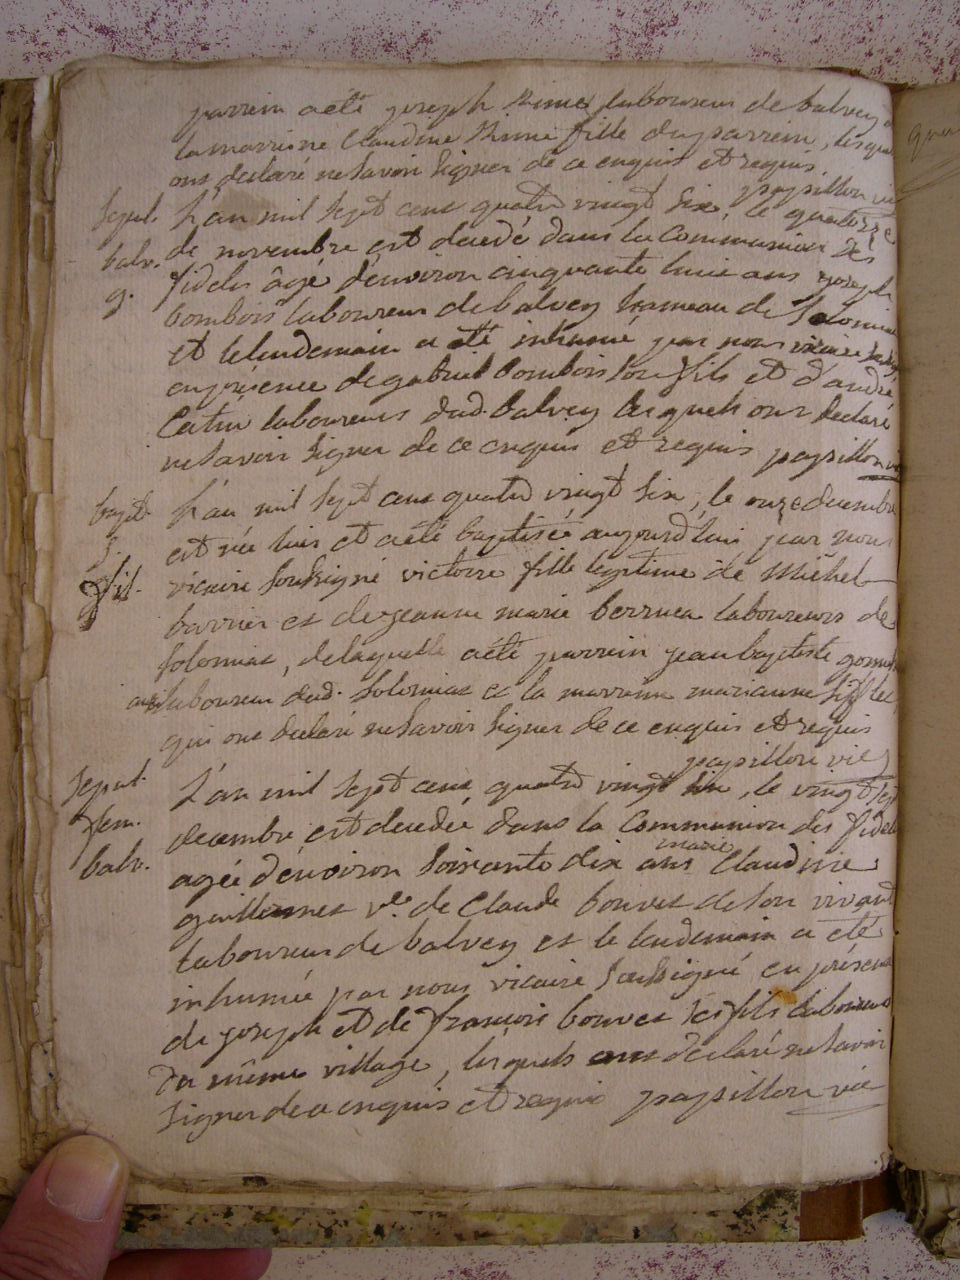 parrein a été joseph Rime laboureur de balvey &
la marreine Claudine Rime fille du parrein, lesquels
ont declaré ne savoir signer de ce enquis et requis
papillon vic
sepul. L'an mil sept cent quatre vingt six, le quatorze
balv. de novembre est decedé dans la communion des
g. fideles âgé d'environ cinquante huit ans joseph
bombois laboureur de balvey hameau de Solomiac
et le lendemain a été inhumé par nous vicaire soussigné
en présence de gabriel bombois son fils et d'andré
Catin laboureurs dud. balvey lesquels ont declaré
ne savoir signer de ce enquis et requis papillon vic
bapt. L'an mil sept cent quatre vingt six, le onze decembre
S. est née hier et a été baptisée aujourd'hui par nous
fil. vicaire soussigné victoire fille legitime de Michel
barrier et de jeanne marie berruca laboureurs de
solomiac, de laquelle a été parrein jean baptiste
laboureur dud. solomiac et la marreine marianne
qui ont declaré ne savoir signer de ce enquis et requis
papillon vic
sepul. L'an mil sept cent quatre vingt six, le vingt sept
fem. decembre est decedée dans la communion des fideles
balv. agée d'environ soixante dix ans marie Claudine
guillermet ve. de Claude bouvet de son vivant
laboureur de balvey et le lendemain a été
inhumée par nous vicaire soussigné en présence
de joseph et de francois bouvet ses fils laboureurs
du même village, lesquels ont declaré ne savoir
signer de ce enquis et requis papillon vic